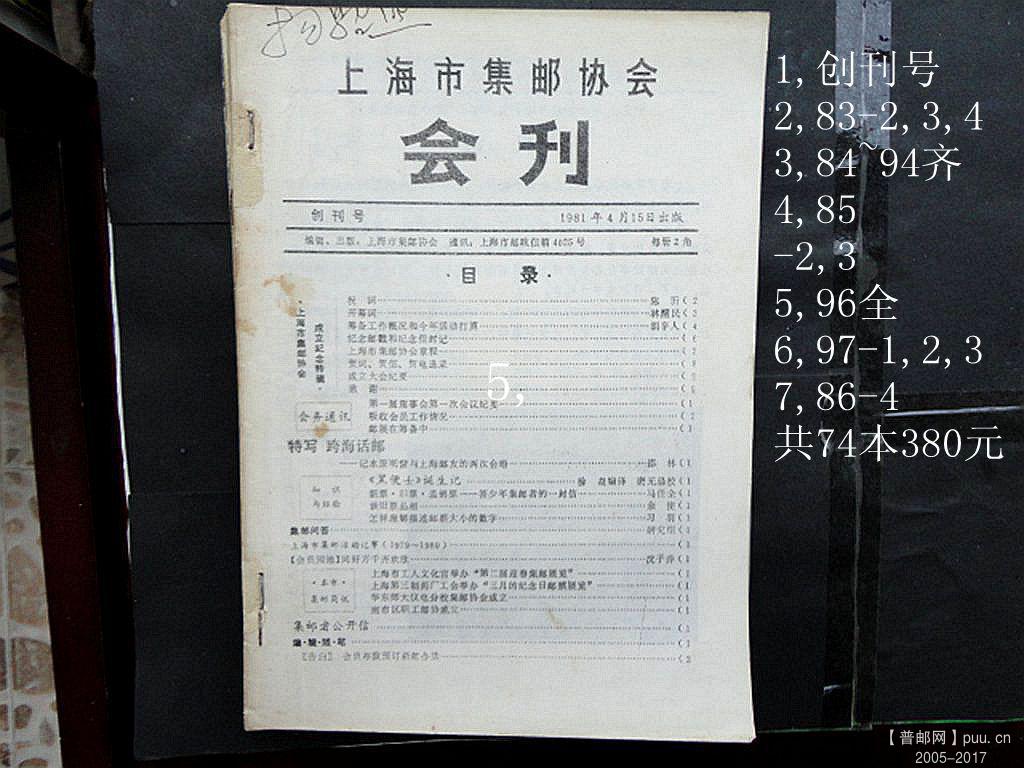 上海市集邮协会
会刊
创刊号
1981年4月15日出版
编辑、出版：上海市集邮协会 通讯：上海市邮政信箱4035号 每册2角
·目 录·
·上海市集邮协会
成立纪念特辑·
祝 词
开幕词
筹备工作概况和今年活动打算
纪念邮戳和纪念信封记
上海市集邮协会章程
贺词、贺信、贺电选录
成立大会纪要
鸣 谢
会务通讯
第一届理事会第一次会议纪要
吸收会员工作情况
邮展在筹备中
特写 跨海话邮
——记水原明窗与上海邮友的两次会晤
邵 林(1
知 识
与经验
《黑便士》诞生记
新票·旧票·盖销票——答少年集邮者的一封信
马任全(1
谈旧票品相
怎样理解描述邮票大小的数字
集邮问答
研究组(1
上海市集邮活动记事(1979～1980)
【会员园地】同好万千齐欢欣
沈子丞(1
·本市·
集邮简讯
上海市工人文化宫举办“第二届迎春集邮展览”
上海第三制药厂工会举办“三月的纪念日邮票展览”
华东师大仪电分校集邮协会成立
南市区职工邮协成立
集邮者公开信
编·辑·随·笔
【告白】 会员存款预订新邮办法
5,
1,创刊号
2,83-2,3,4
3,84~94齐
4,85
-2,3
5,96全
6,97-1,2,3
7,86-4
共74本380元
【普邮网】puu.cn
2005-2017